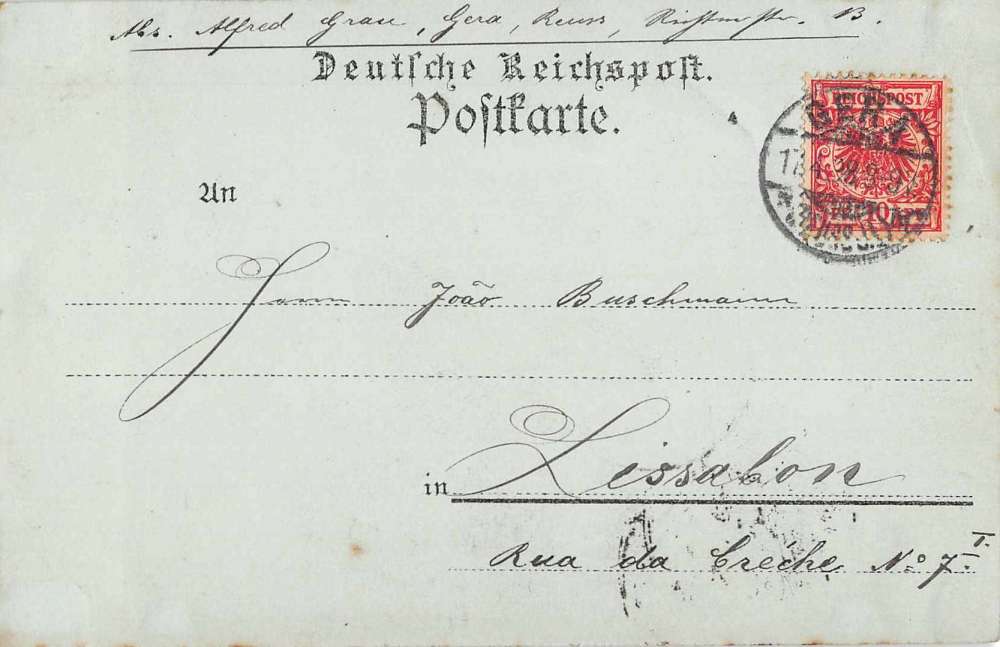 Abs. Alfred Grau, Gera, Reuss, B.
Deutsche Reichspost.
Postkarte.
REICHSPOST
GERA
An
Herrn João Buschmann
in Lissabon
Rua da Créche No. 7 I.